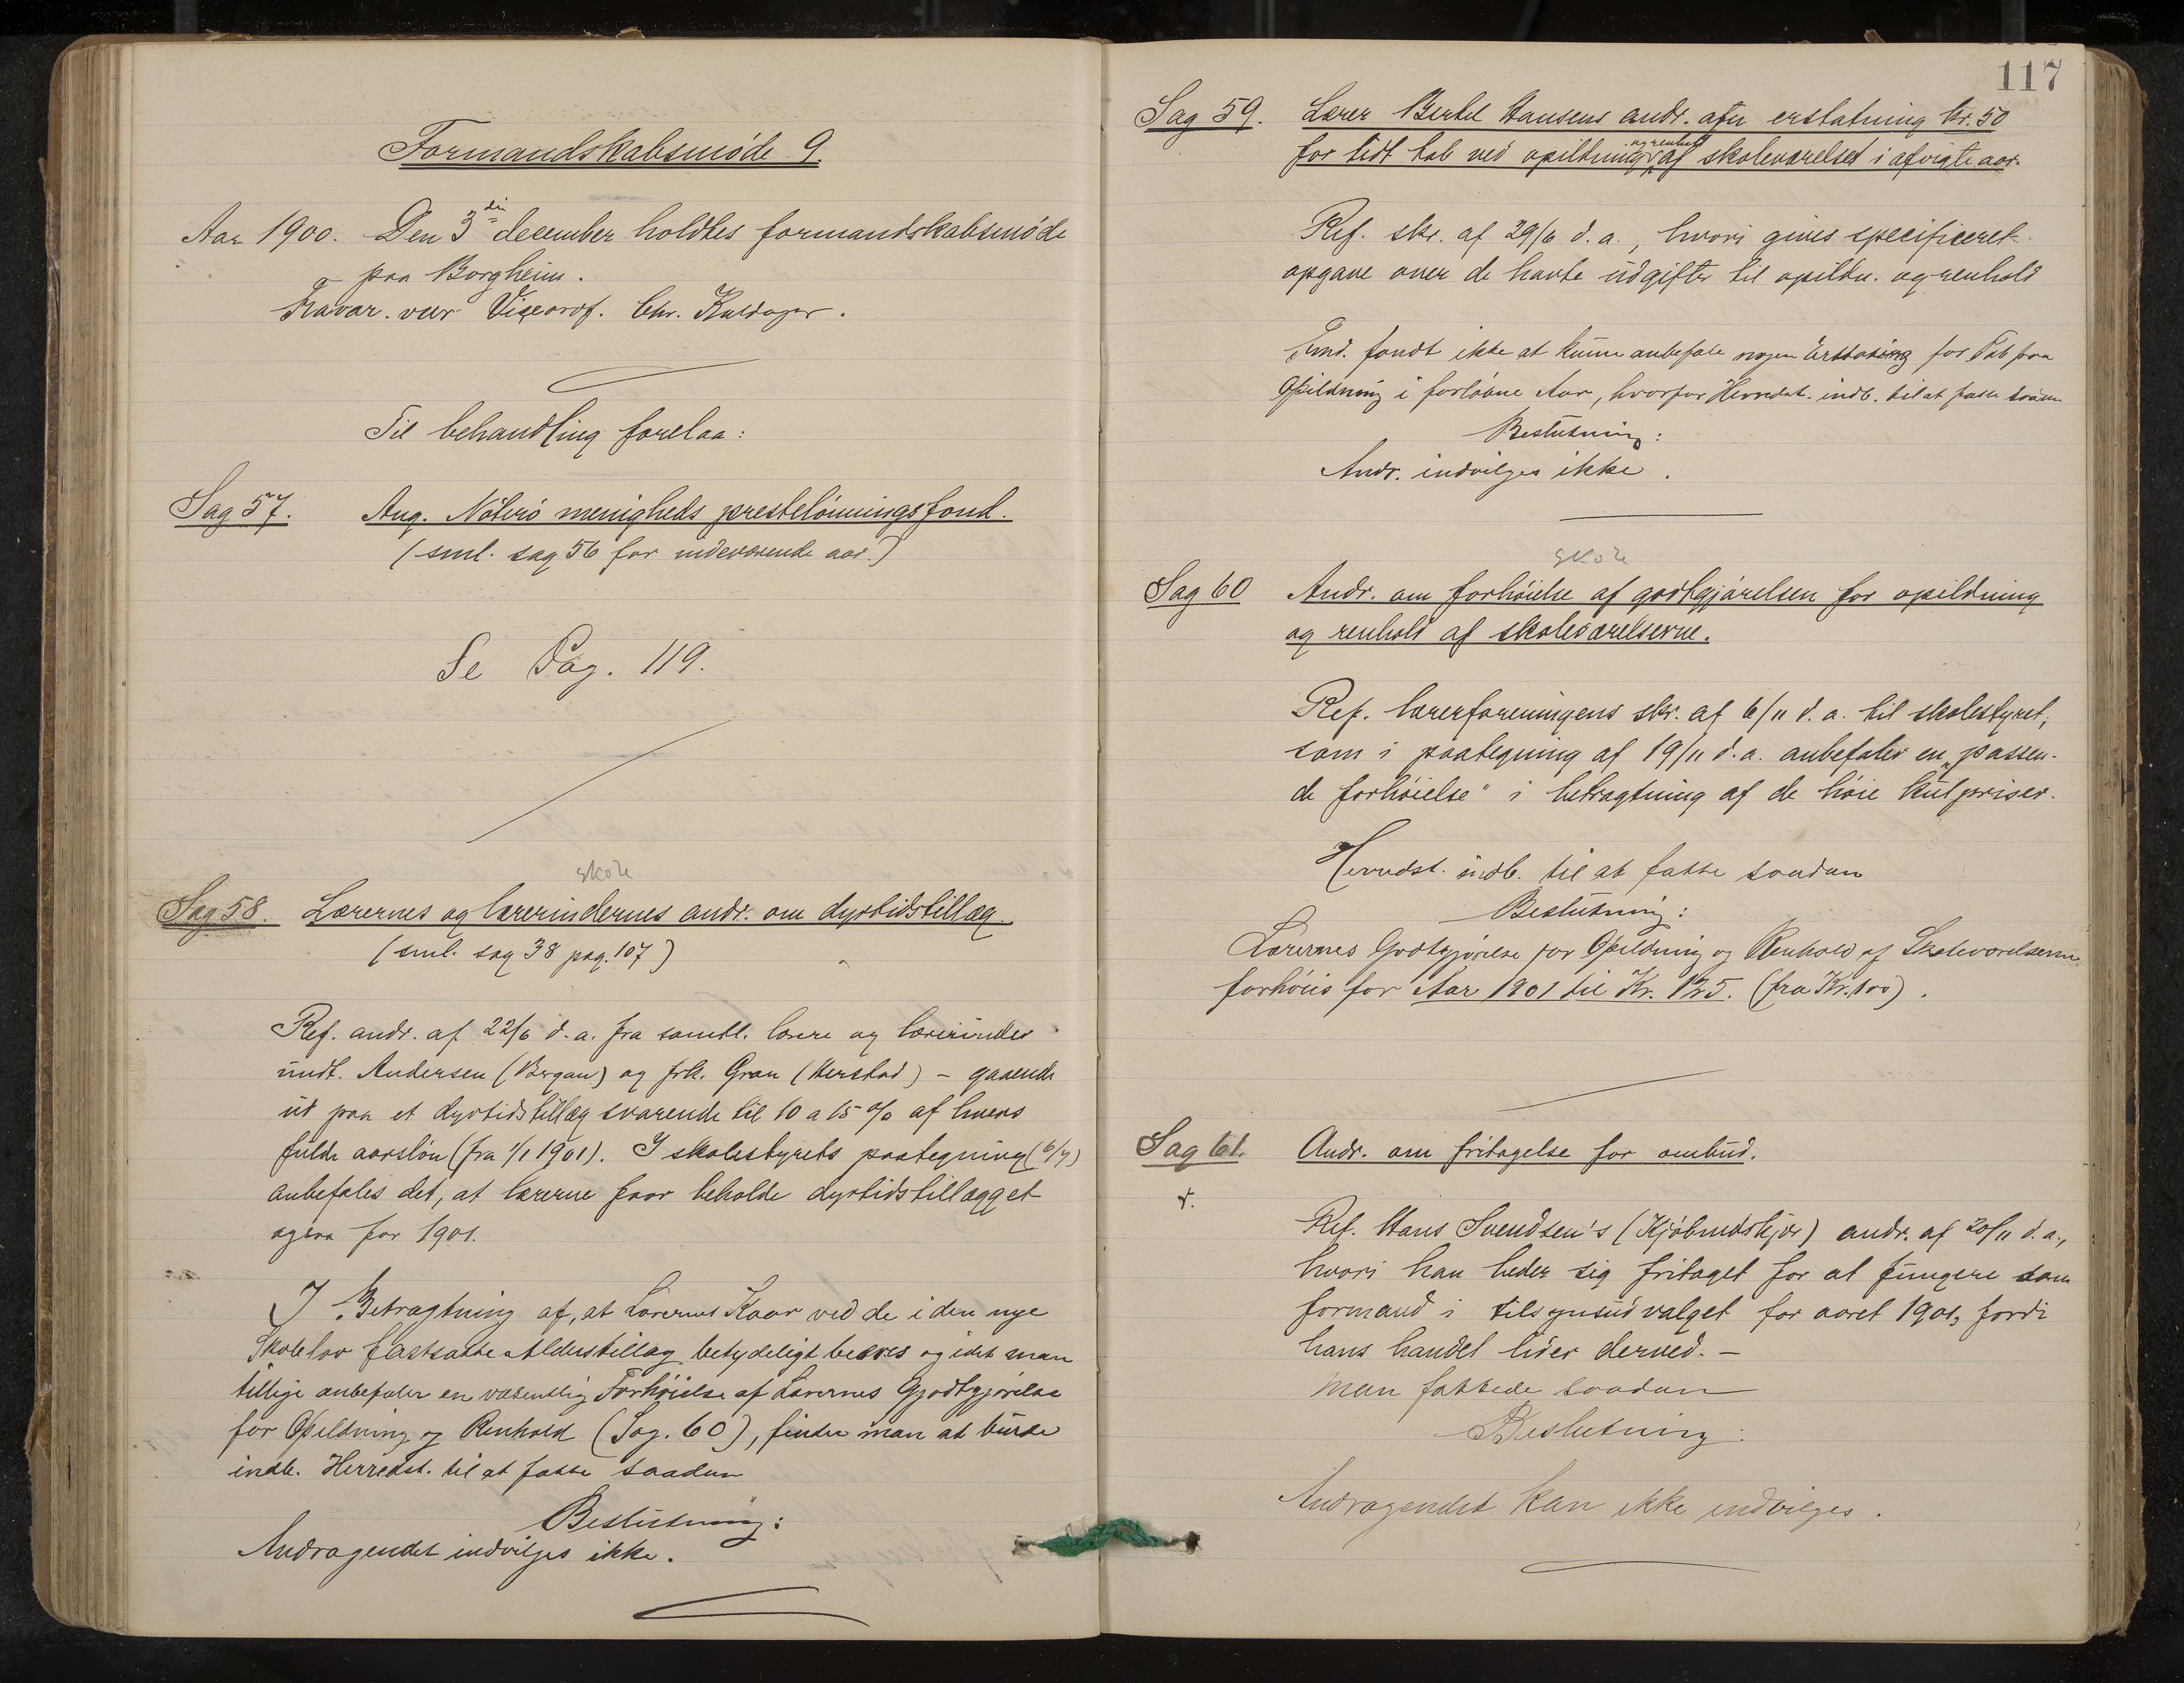 Formandskabsmøde 9.
Aar 1900. Den 3die december holdtes formandskabsmøde
paa Borgheim.
Fravær. var Viceordf. Chr. Kaldager.
Til behandling forelaa:
Sag 57. Ang. Nøterø menigheds prestelønningsfond.
(sml. sag 56 for indeværende aar.)
Se Pag. 119.
skole
Sag 58. Lærernes og lærerindernes andr. om dyrtidstillæg.
(sml. sag 38 pag. 107)
Ref. andr. af 22/6 d. a. fra samtl. lærere og lærerinder
undt. Andersen (Bergan) og frk. Gran (Herstad) – gaaende
ud paa et dyrtidstillæg svarende til 10 a 15 % af hvers
fulde aarsløn (fra 1/1 1901). I skolestyrets paategning (6/7)
anbefales det, at lærerne faar beholde dyrtidstillægget
ogsaa for 1901.
I Betragtning af, at Lærernes Kaar ved de i den nye
Skolelov fastsatte Alderstillæg betydeligt bedres og idet man
tillige anbefaler en væsentlig Forhøielse af Lærernes Godtgjørelse
for Opildning og Renhold (Sag. 60), finder man at burde
indb. Herredst. til at fatte saadan
Beslutning:
Andragendet indvilges ikke.
117
Sag 59. Lærer Bertel Hansens andr. om erstatning kr. 50
og renhold
for lidt tab ved opildning af skoleværelset i afvigte aar.
Ref. skr. af 29/6 d. a., hvori gives specificeret
opgave over de havte udgifter til opildn. og renhold
Fmd. fandt ikke at kunne anbefale nogen Erstatning for Tab paa
Opildning i forløbne Aar, hvorfor Herredst. indb. til at fatte saadan
Beslutning:
Andr. indvilges ikke.
skole
Sag 60 Andr. om forhøielse af godtgjørelsen for opildning
og renhold af skoleværelserne.
Ref. lærerforeningens skr. af 6/11 d. a. til skolestyret,
som i paategning af 19/11 d. a. anbefaler en „passen-
de forhøielse" i betragtning af de høie kulpriser.
Herredst. indb. til at fatte saadan
Beslutning:
Lærernes Godtgjørelse for Opildning og Renhold af Skoleværelserne
forhøies for Aar 1901 til Kr. 125. (fra Kr. 100).
Sag 61. Andr. om fritagelse for ombud.
Ref. Hans Svendsen's (Kjøbmdskjær) andr. af 20/11 d. a.,
hvori han beder sig fritaget for at fungere som
formand i tilsynsudvalget for aaret 1901, fordi
hans handel lider derved. –
Man fattede saadan
Beslutning:
Andragendet kan ikke indvilges.